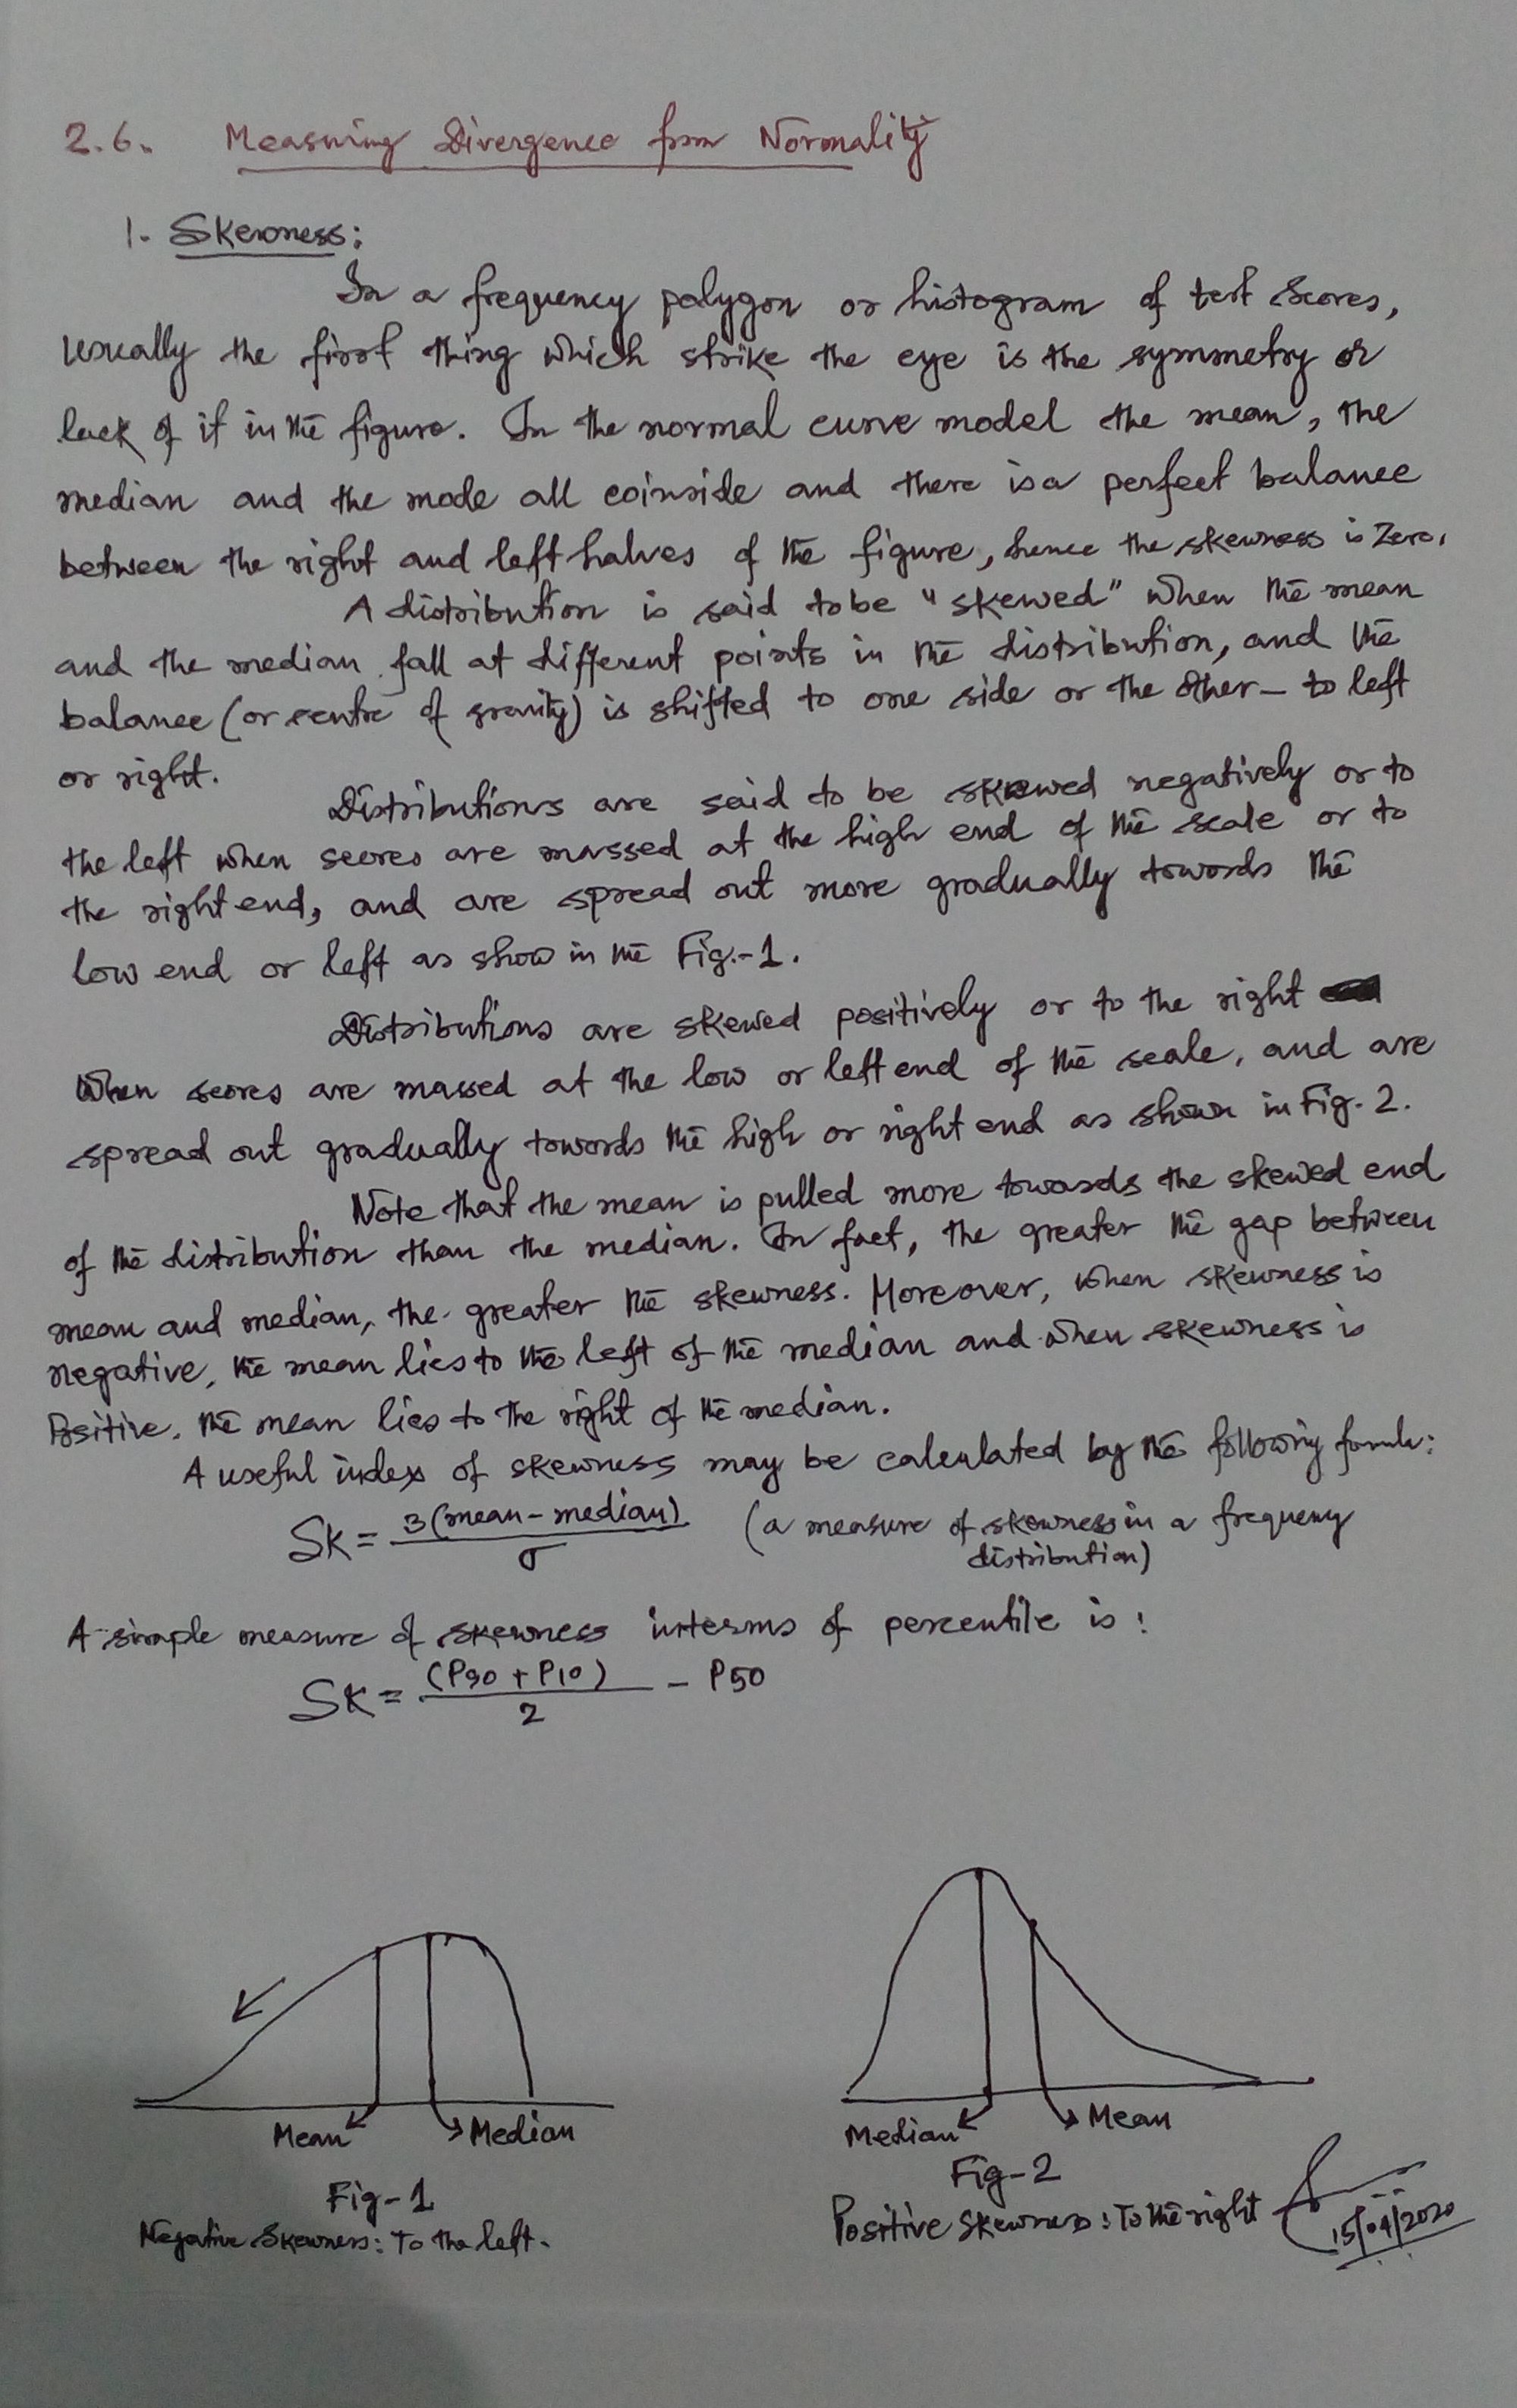 2.6. Measuring Divergence from Normality
1. Skewness:
In a frequency polygon or histogram of test scores,
usually the first thing which strike the eye is the symmetry or
lack of it in the figure. In the normal curve model the mean, the
median and the mode all coinside and there is a perfect balance
between the right and left halves of the figure, hence the skewness is zero.
A distribution is said to be "skewed" when the mean
and the median fall at different points in the distribution, and the
balance (or centre of gravity) is shifted to one side or the other - to left
or right.
Distributions are said to be skewed negatively or to
the left when scores are massed at the high end of the scale or to
the right end, and are spread out more gradually towards the
low end or left as show in the Fig.-1.
Distributions are skewed positively or to the right
when scores are massed at the low or left end of the scale, and are
spread out gradually towards the high or right end as shown in Fig. 2.
Note that the mean is pulled more towards the skewed end
of the distribution than the median. In fact, the greater the gap between
mean and median, the greater the skewness. Moreover, when skewness is
negative, the mean lies to the left of the median and when skewness is
Positive, the mean lies to the right of the median.
A useful index of skewness may be calculated by the following formula:
SK = 3(mean - median) / σ (a measure of skewness in a frequency
distribution)
A simple measure of skewness interms of percentile is:
SK = (P90 + P10) / 2 - P50
Mean Median
Fig-1
Negative Skewness: To the left.
Median Mean
Fig-2
Positive Skewness: To the right
15/04/2020